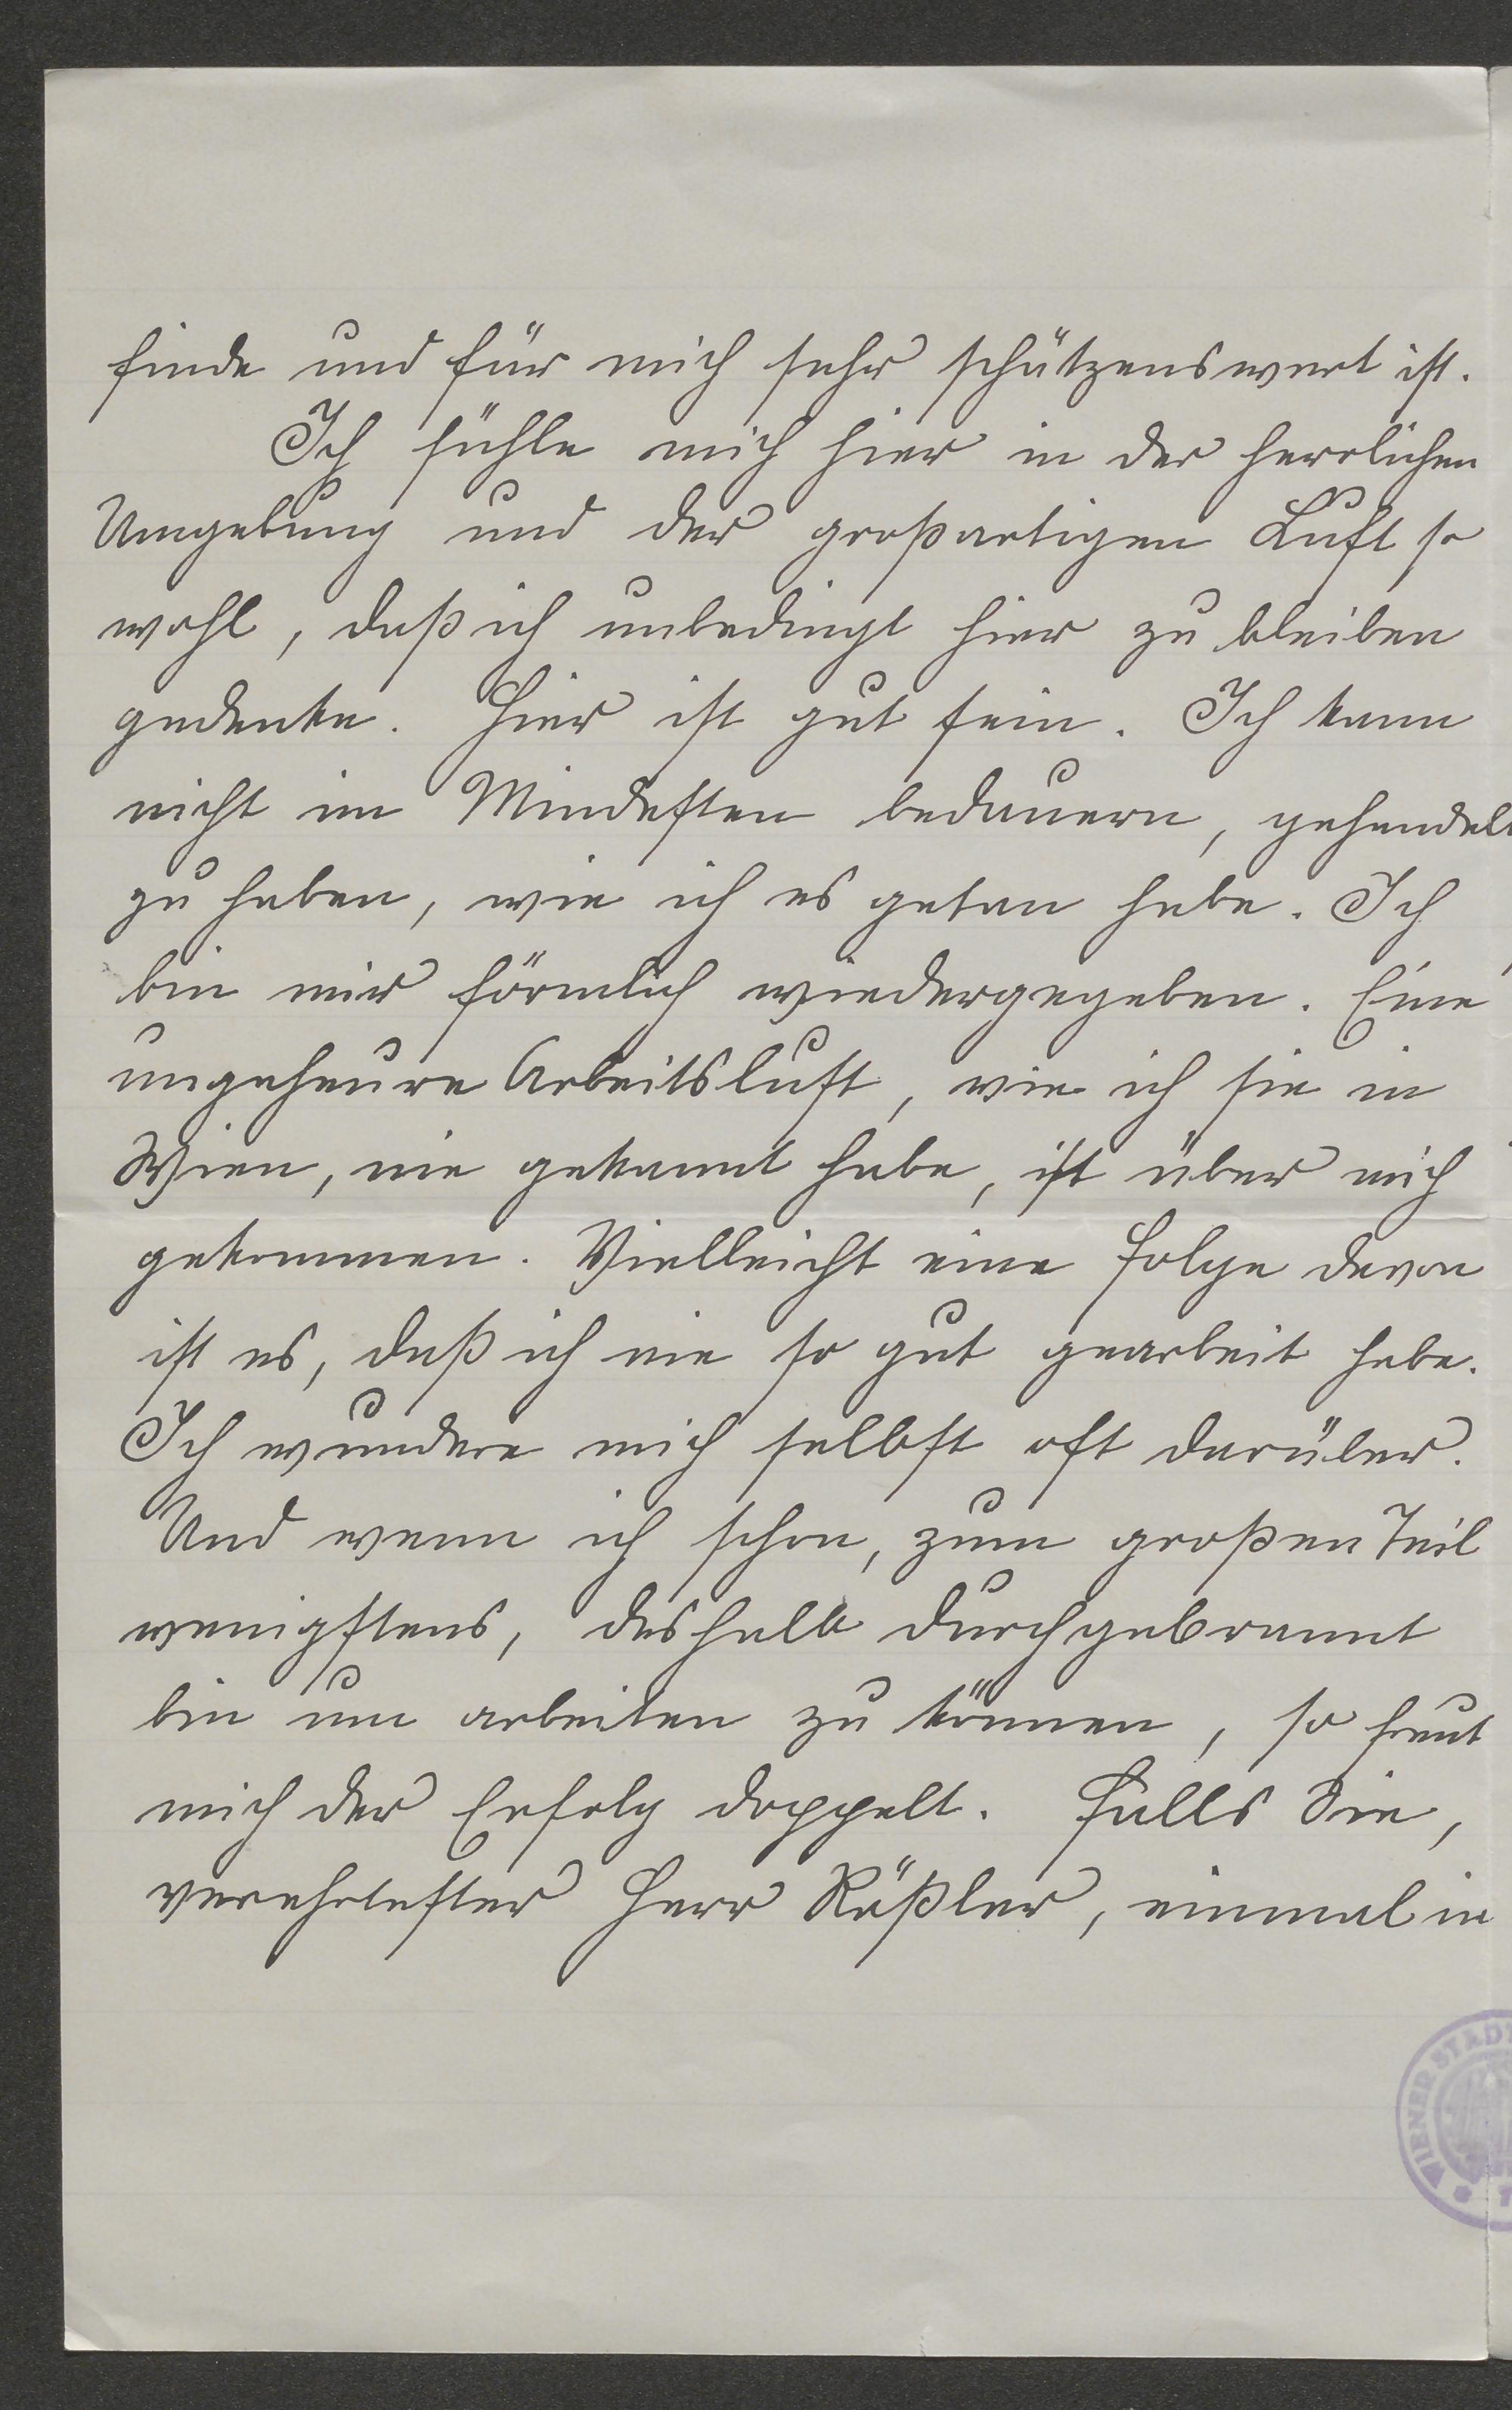 finde und für mich sehr schätzenswert ist.
Ich fühle mich hier in der herrlichen
Umgebung und der großartigen Luft so
wohl, daß ich unbedingt hier zu bleiben
gedenke. Hier ist gut sein. Ich kann
nicht im Mindesten bedauern, gehandelt
zu haben, wie ich es getan habe. Ich
bin mir förmlich wiedergegeben. Eine
ungeheure Arbeitslust, wie ich sie in
Wien, nie gekannt habe, ist über mich
gekommen. Vielleicht eine Folge davon
ist es, daß ich nie so gut gearbeit habe.
Ich wundere mich selbst oft darüber.
Und wenn ich schon, zum großen Teil
wenigstens, deshalb durchgebrannt
bin um arbeiten zu können, so freut
mich der Erfolg doppelt. Falls Sie,
verehrtester Herr Rößler, einmal in
WIENER STÄDT